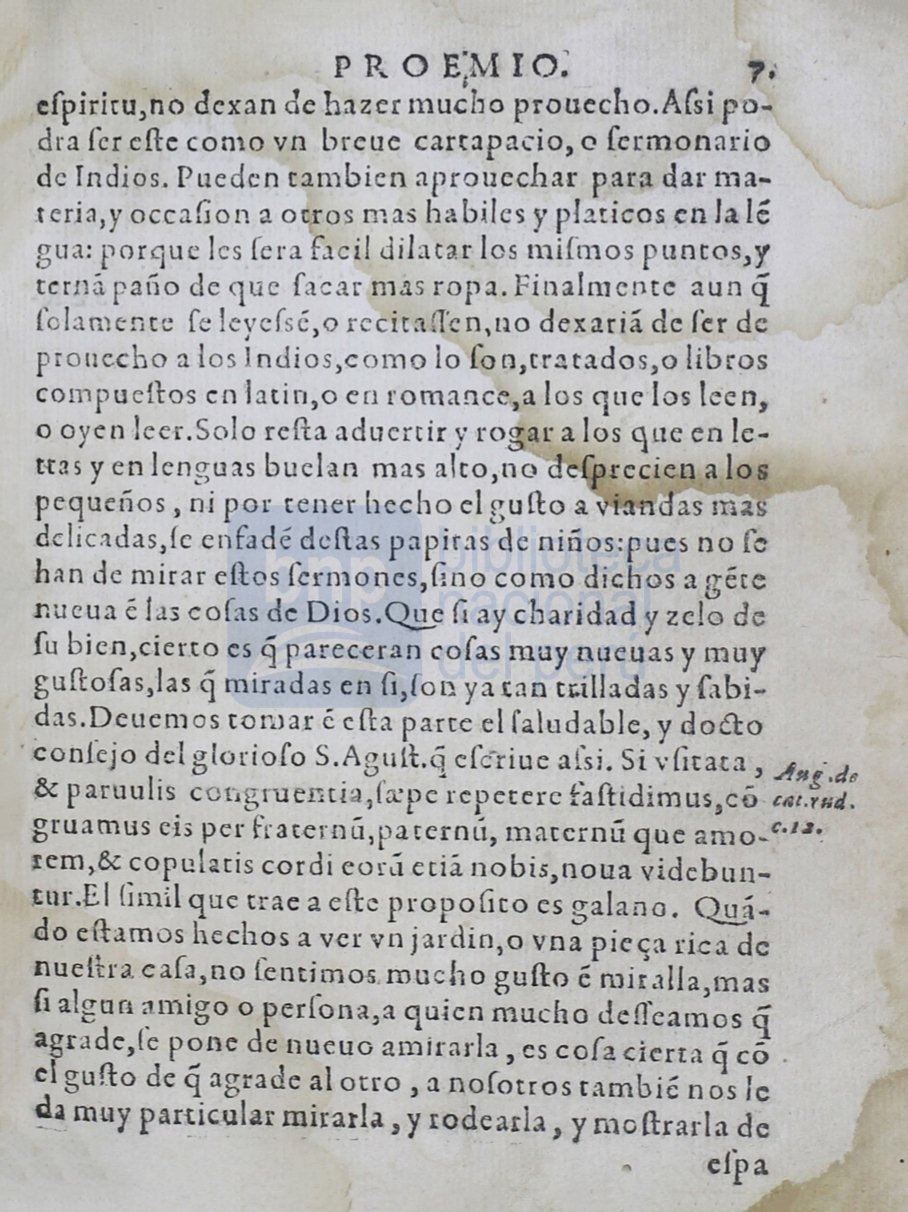 PROEMIO. 7.
eſpiritu,no dexan de hazer mucho prouecho.Aſsi po-
dra ſer eſte como vn breue cartapacio,o ſermonario
de Indios. Pueden tambien aprouechar para dar ma-
teria,y occaſion a otros mas habiles y platicos en la lẽ
gua: porque les ſera facil dilatar los miſmos puntos,y
ternã paño de que ſacar mas ropa. Finalmente aun q̃
ſolamente ſe leyeſsẽ,o recitaſſen,no dexariã de ſer de
prouecho a los Indios,como lo ſon,tratados,o libros
compueſtos en latin,o en romance,a los que los leen,
o oyen leer.Solo reſta aduertir y rogar a los que en le-
tras y en lenguas buelan mas alto,no deſprecien a los
pequeños , ni por tener hecho el guſto a viandas mas
delicadas,ſe enfadẽ deſtas papitas de niños:pues no ſe
han de mirar eſtos ſermones,ſino como dichos a gẽte
nueua ẽ las coſas de Dios.Que ſi ay charidad y zelo de
ſu bien,cierto es q̃ pareceran coſas muy nueuas y muy
guſtoſas,las q̃ miradas en ſi,ſon ya tan trilladas y ſabi-
das.Deuemos tomar ẽ eſta parte el ſaludable, y docto
conſejo del glorioſo S.Aguſt.q̃ eſcriue aſsi. Si vſitata ,
& paruulis congruentia,ſæpe repetere faſtidimus,cõ
gruamus eis per fraternũ,paternũ, maternũ que amo-
rem,& copulatis cordi eorũ etiã nobis,noua videbun-
tur.El ſimil que trae a eſte propoſito es galano. Quã-
do eſtamos hechos a ver vn jardin,o vna pieça rica de
nueſtra caſa,no ſentimos mucho guſto ẽ miralla,mas
ſi algun amigo o perſona,a quien mucho deſſeamos q̃
agrade,ſe pone de nueuo a mirarla , es coſa cierta q̃ cõ
el guſto de q̃ agrade al otro , a noſotros tambiẽ nos le
da muy particular mirarla , y rodearla , y moſtrarla de
eſpa
Aug.de
cat.rud.
c.12.
bnp biblioteca
nacional
del perú